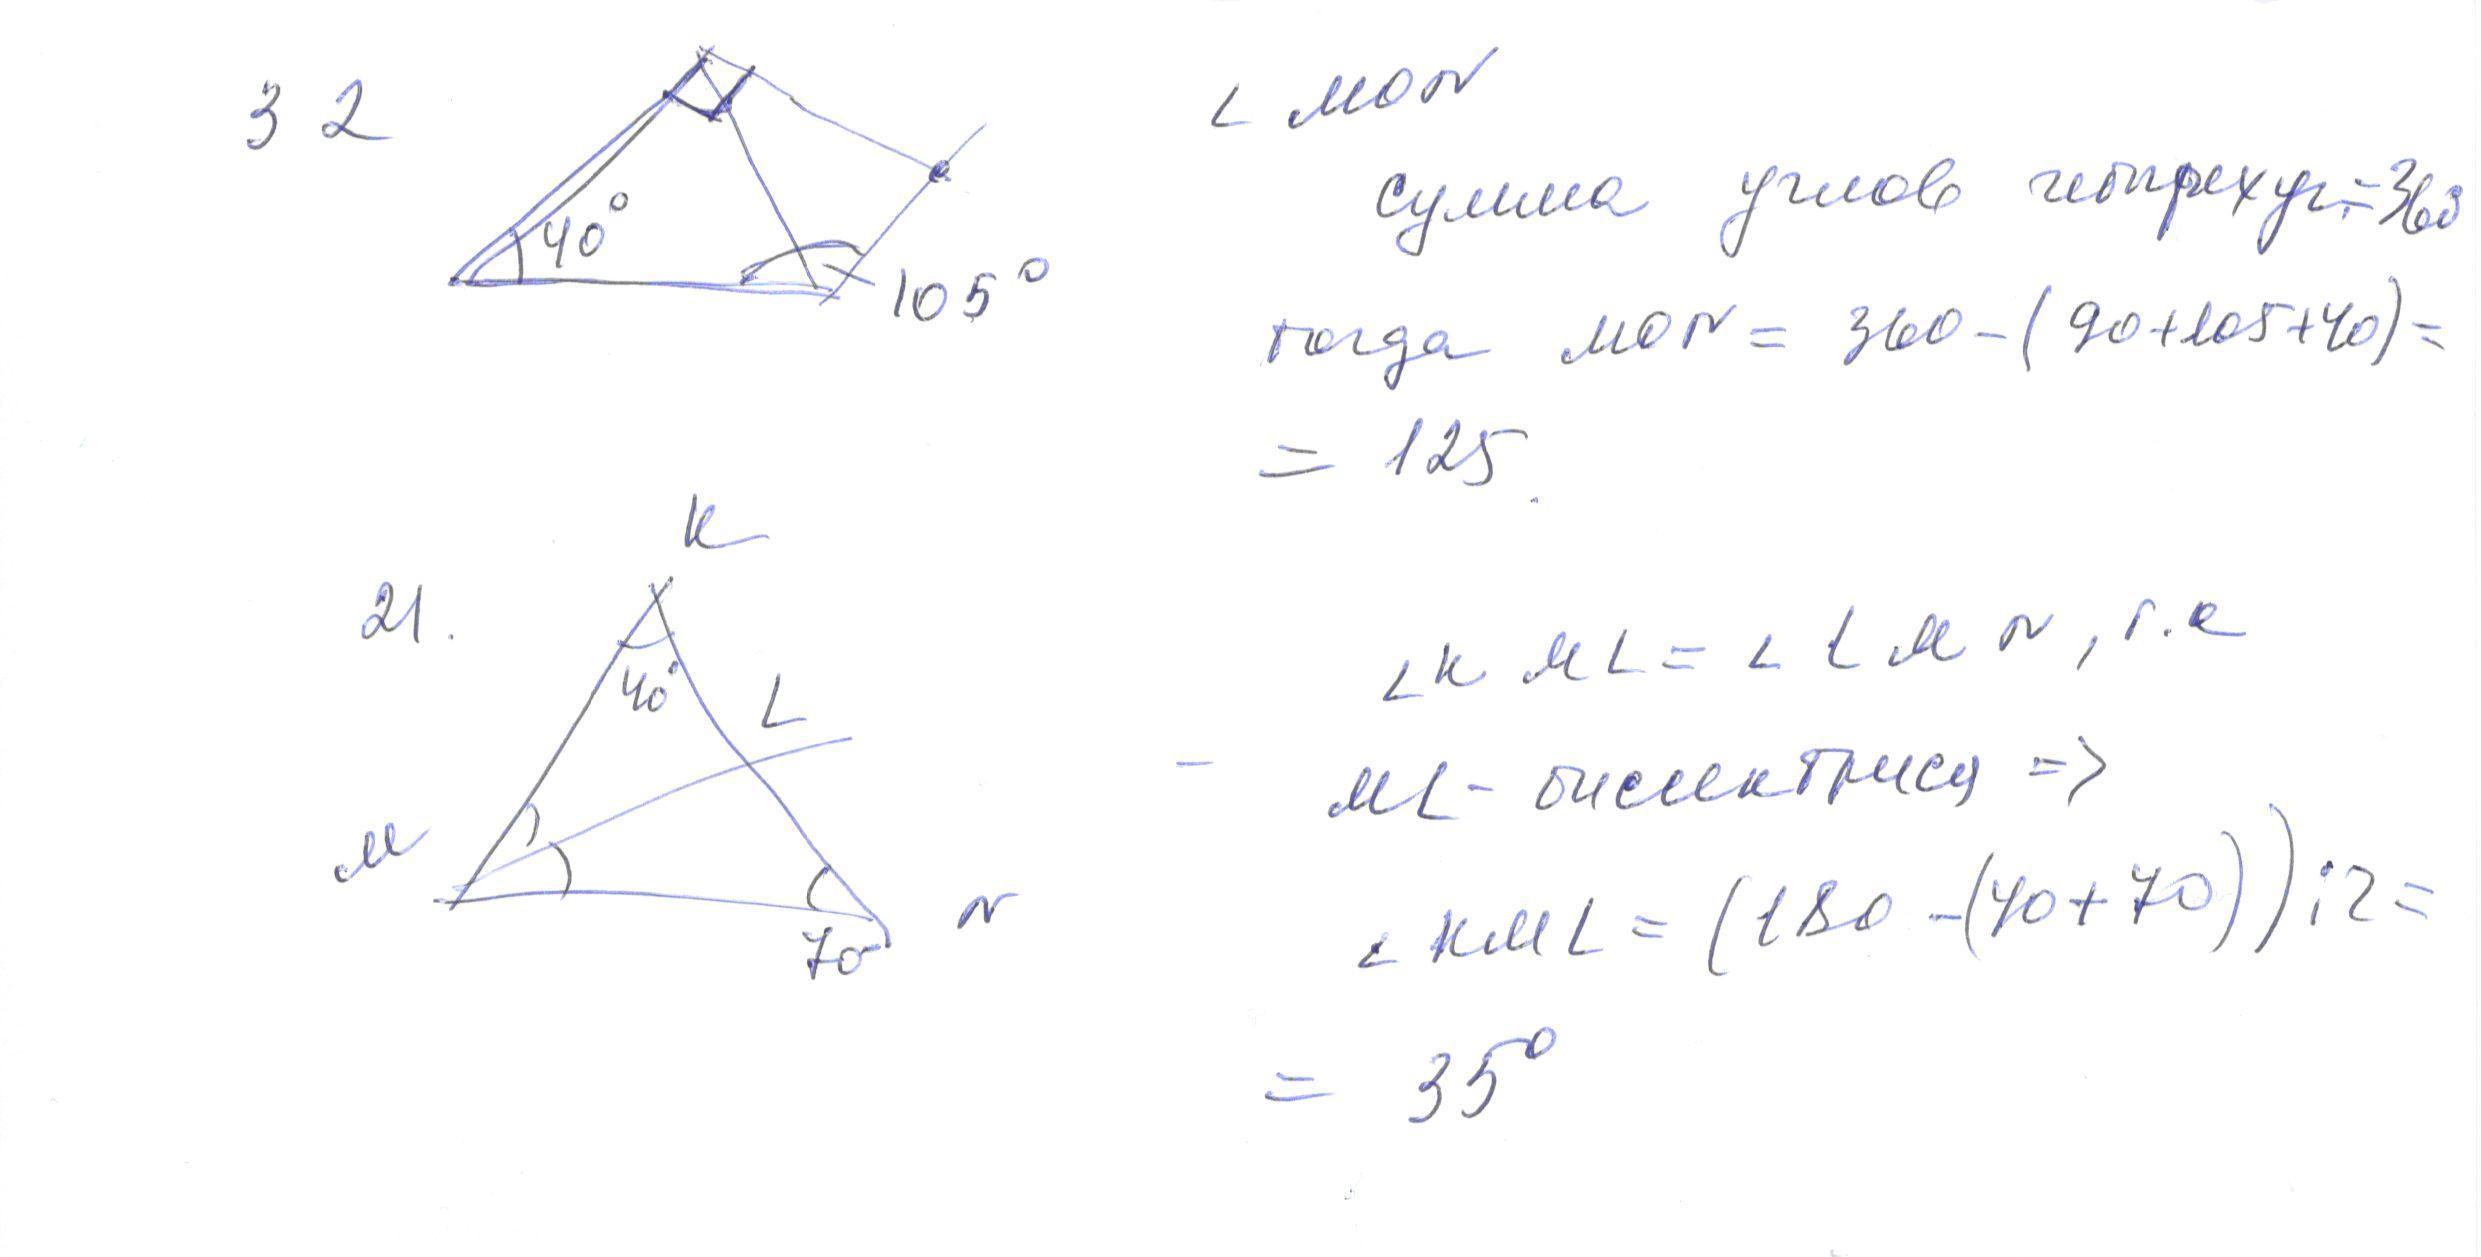 32
40°
105°
∠ MON
сумма углов четырехуг. = 360
тогда MON = 360 - (90+105+40) =
= 125.
21.
K
40°
L
M
N
70
∠KML = ∠LMN, т.к
ML - биссектриса =>
∠KML = (180 - (40+70)) : 2 =
= 35°